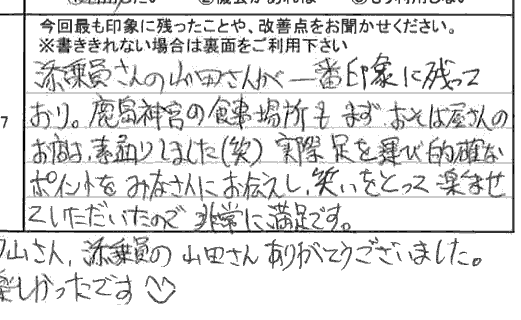 今回最も印象に残ったことや、改善点をお聞かせください。
※書ききれない場合は裏面をご利用下さい
7
添乗員さんの山田さんが一番印象に残って
おり。鹿島神宮の食事場所も まず おそば屋さんの
お店は、素通りしました(笑) 実際 足を運び 的確な
ポイントを みなさんに お伝えし、笑いをとって 楽ませ
ていただいたので 非常に満足です。
山さん、添乗員の 山田さん ありがとうございました。
楽しかったです♡